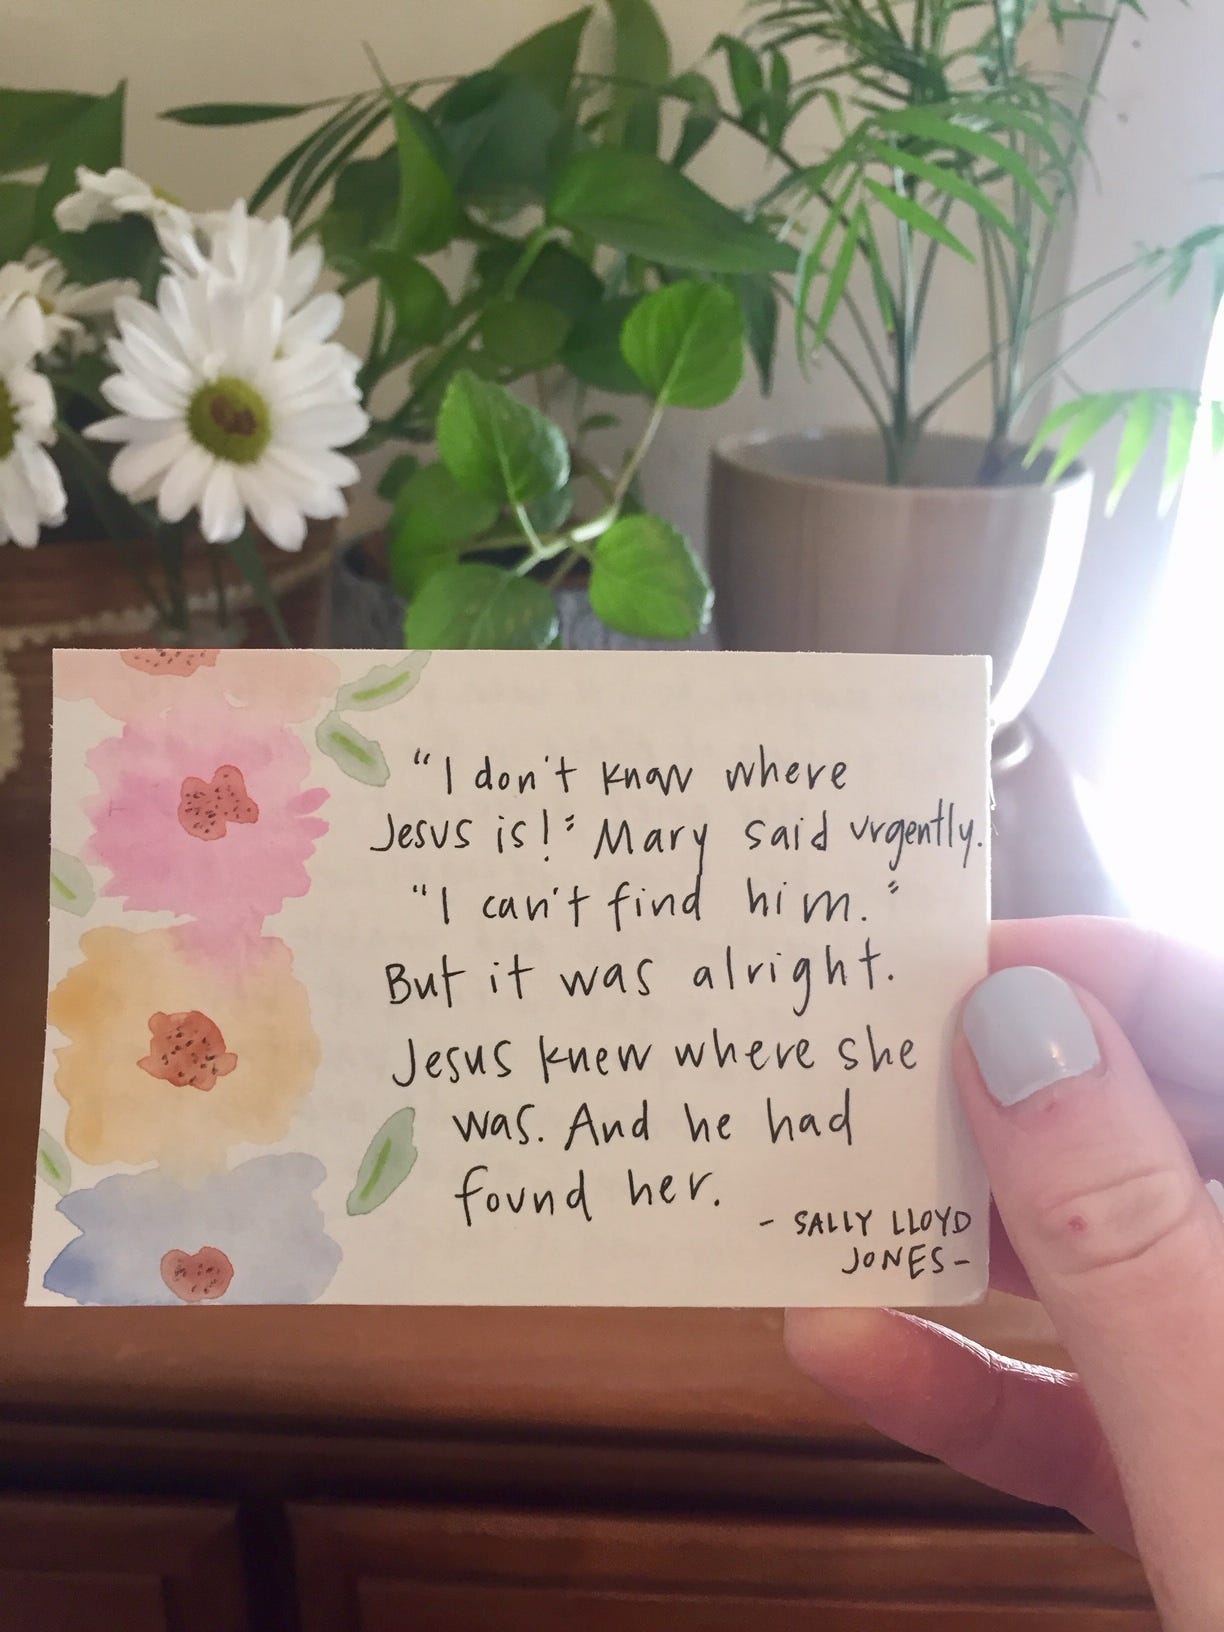 "I don't know where
Jesus is!" Mary said urgently.
"I can't find him."
But it was alright.
Jesus knew where she
was. And he had
found her.
- SALLY LLOYD
JONES-